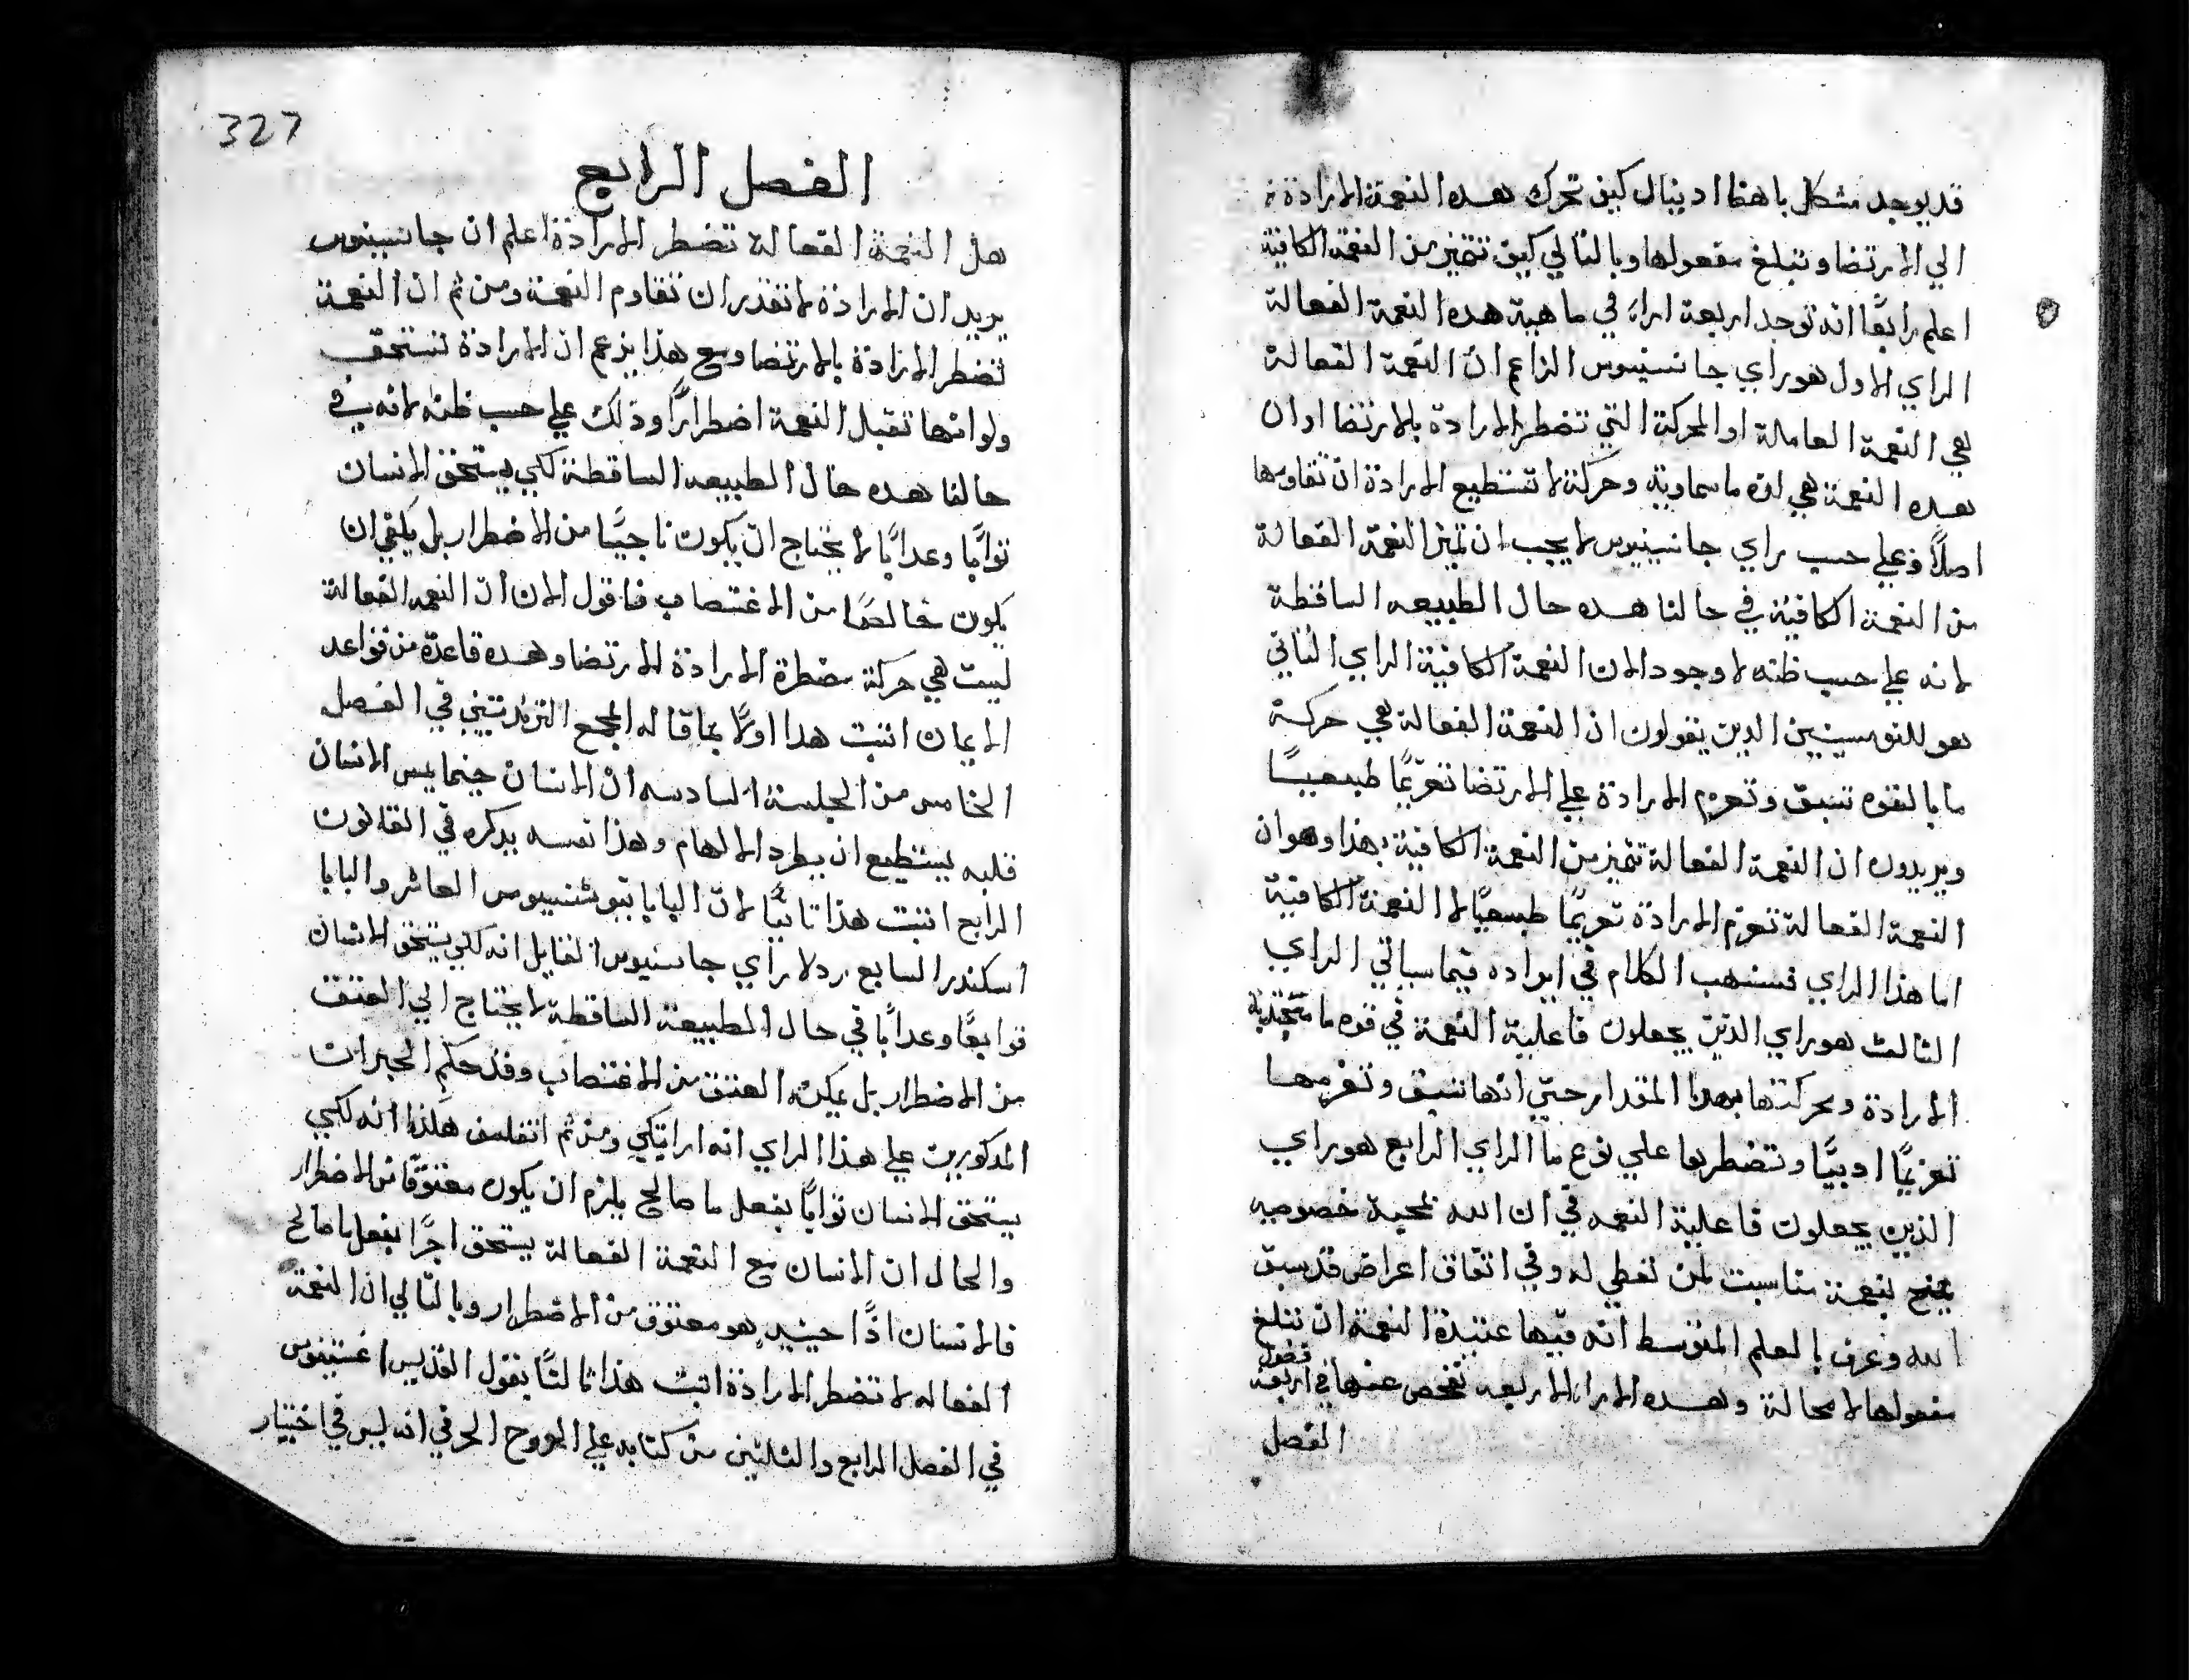 قد يوجد مشكل باهظ اد يقال كيف تحرك هذه النعمة الارادة
الي الارتضا وتبلغ مفعولها وبالتالي كيف تتميز من النعمة الكافية
اعلم رابعًا انه توجد اربعة اراء في ماهية هذه النعمة الفعالة
الراي الاول هو راي جانسينيوس الزاعم ان النعمة الفعالة
هي النعمة العاملة او المحركة التي تضطر الارادة بالارتضا او ان
هذه النعمة هي لذه ما سماوية وحركة لا تستطيع الارادة ان تقاومها
اصلاً فعلي حسب راي جانسينيوس لا يجب ان تميز النعمة الفعالة
من النعمة الكافية في حالنا هذه حال الطبيعه الساقطة
لانه علي حسب ظنه لا وجود الان النعمة الكافية الراي الثاني
هو للتوميسيين الذين يقولون ان النعمة الفعالة هي حركة
ما بالقوه تسبق وتعزم الارادة علي الارتضا تعزيمًا طبيعيًا
ويريدون ان النعمة الفعالة تتميز من النعمة الكافية بهذا وهو ان
النعمة الفعالة تعزم الارادة تعزيمًا طبيعيًا لا النعمة الكافية
اما هذا الراي فسنسهب الكلام في ايراده فيما سياتي الراي
الثالث هو راي الذين يجعلون فاعلية النعمة في قوه ما
الارادة وبحركتها بهذا المقدار حتي انها تسبق وتعزمها
تعزيمًا ادبيًا وتضطرها علي نوع ما الراي الرابع هو راي
الذين يجعلون فاعلية النعمه في ان الله بمحبة خصوصيه
يمنح بنعمة مناسبت لمن تعطي له وفي اتفاق اعراض قد سبق
الله وعرف بالعلم المتوسط انه فيها عتيدة النعمة ان تبلغ
مفعولها لا محالة وهذه الارا الاربعه نفحص عنها في اربعة فصول
الفصل
327
الفصل الرابع
هل النعمة الفعالة تضطر الارادة اعلم ان جانسينيوس
يريد ان الارادة لا تقدر ان تقاوم النعمة ومن ثم ان النعمة
تضطر الارادة بالارتضا ومع هذا يزعم ان الارادة تستحق
ولو انها تقبل النعمة اضطرارًا وذلك علي حسب ظنه لانه في
حالنا هذه حال الطبيعه الساقطة لكي يستحق الانسان
ثوابًا وعدابًا لا يحتاج ان يكون ناجيًا من الاضطرار بل يكفي ان
يكون خالصًا من الاغتصاب فاقول الان ان النعمه الفعالة
ليست هي حركة مضطرة الارادة للارتضا وهذه قاعدة من قواعد
الايمان اثبت هدا اولاً بما قاله المجمع التريدنتيني في الفصل
الخامس من الجلسة السادسه ان الانسان حينما يمس الانسان
قلبه يستطيع ان يطرد الالهام وهذا نفسه يدكره في القانون
الرابع اثبت هذا ثانيًا لان البابا اينوشنسيوس العاشر والبابا
اسكندر السابع ردلا راي جانسنيوس القايل انه لكي يستحق الانسان
ثوابًا وعدابًا في حال الطبيعة الساقطة لا يحتاج الي العتق
من الاضطرار بل يمكنه العتق من الاغتصاب وقد حكم الحبران
المدكورين علي هذا الراي انه اراتيكي ومن ثم اتفلسف هكذا انه لكي
يستحق الانسان ثوابًا بفعل ما صالح يلزم ان يكون معتوقًا من الاضطرار
والحال ان الانسان مع النعمة الفعالة يستحق اجرًا بفعل ما صالح
فالانسان اذًا حينيدٍ هو معتوق من الاضطرار وبالتالي ان النعمة
الفعاله لا تضطر الارادة اثبت هذا ثالثًا بقول القديس اغستينوس
في الفصل الرابع والثلثين من كتابه علي الروح الحرفي انه ليس في اختيار